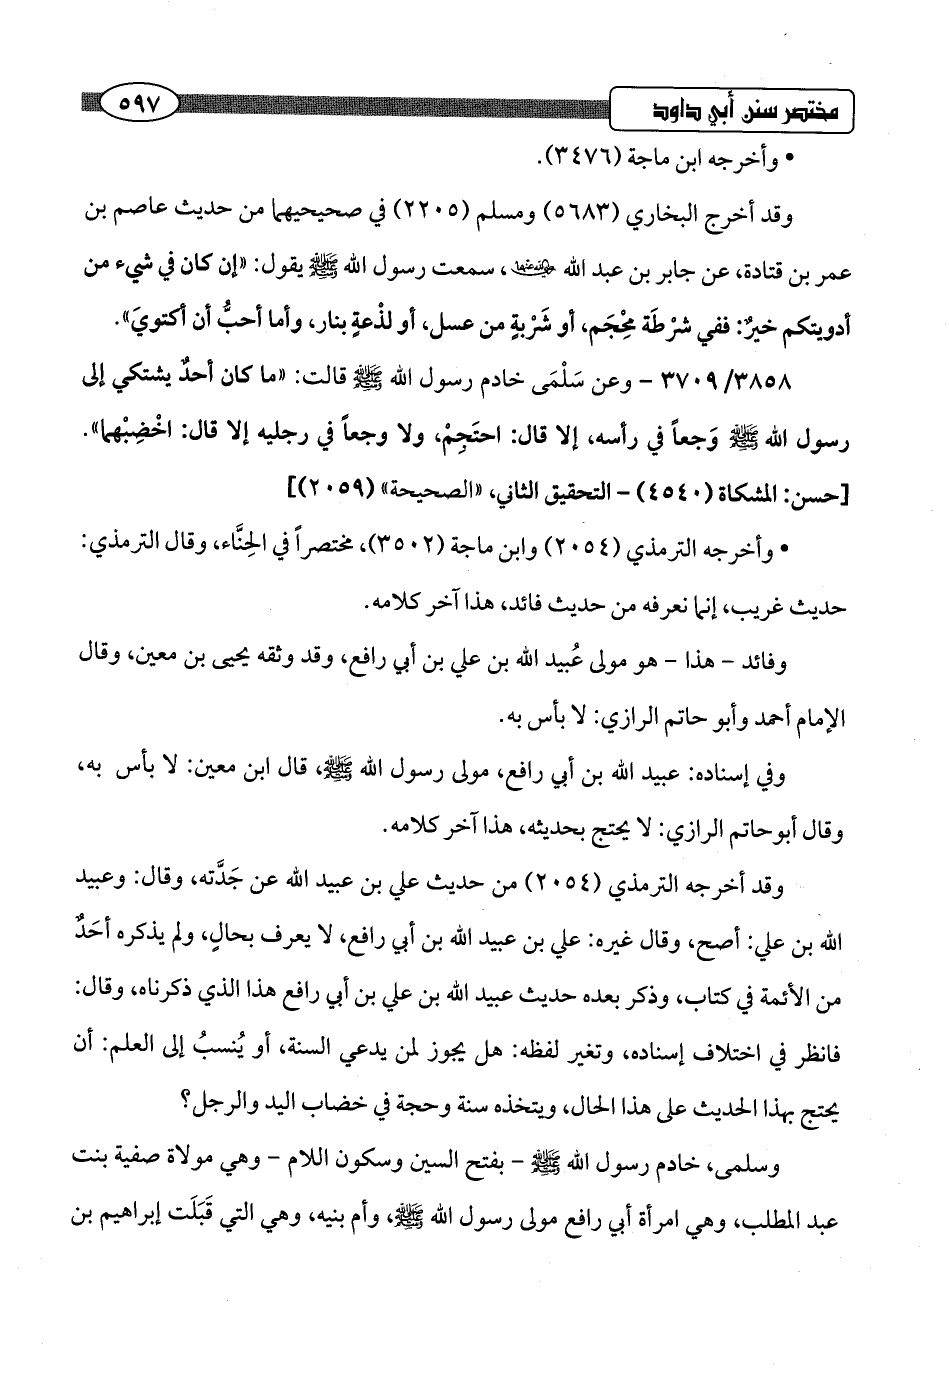 مختصر سنن أبي داود
٥٩٧
• وأخرجه ابن ماجة (٣٤٧٦).
وقد أخرج البخاري (٥٦٨٣) ومسلم (٢٢٠٥) في صحيحيهما من حديث عاصم بن
عمر بن قتادة، عن جابر بن عبد الله رضي الله عنهما، سمعت رسول الله ﷺ يقول: «إن كان في شيء من
أدويتكم خيرٌ: ففي شرْطَة مِحْجَم، أو شَرْبةٍ من عسل، أو لذْعةٍ بنار، وأما أحبُّ أن أكتويَ».
٣٨٥٨/ ٣٧٠٩ - وعن سَلْمَى خادم رسول الله ﷺ قالت: «ما كان أحدٌ يشتكي إلى
رسول الله ﷺ وَجعاً في رأسه، إلا قال: احتَجِمْ، ولا وجعاً في رجليه إلا قال: اخْضِبْهما».
[حسن: المشكاة (٤٥٤٠) - التحقيق الثاني، «الصحيحة» (٢٠٥٩)]
• وأخرجه الترمذي (٢٠٥٤) وابن ماجة (٣٥٠٢)، مختصراً في الحِنَّاء، وقال الترمذي:
حديث غريب، إنما نعرفه من حديث فائد، هذا آخر كلامه.
وفائد - هذا - هو مولى عُبيد الله بن علي بن أبي رافع، وقد وثقه يحيى بن معين، وقال
الإمام أحمد وأبو حاتم الرازي: لا بأس به.
وفي إسناده: عبيد الله بن أبي رافع، مولى رسول الله ﷺ، قال ابن معين: لا بأس به،
وقال أبوحاتم الرازي: لا يحتج بحديثه، هذا آخر كلامه.
وقد أخرجه الترمذي (٢٠٥٤) من حديث علي بن عبيد الله عن جَدَّته، وقال: وعبيد
الله بن علي: أصح، وقال غيره: علي بن عبيد الله بن أبي رافع، لا يعرف بحالٍ، ولم يذكره أحَدٌ
من الأئمة في كتاب، وذكر بعده حديث عبيد الله بن علي بن أبي رافع هذا الذي ذكرناه، وقال:
فانظر في اختلاف إسناده، وتغير لفظه: هل يجوز لمن يدعي السنة، أو يُنسبُ إلى العلم: أن
يحتج بهذا الحديث على هذا الحال، ويتخذه سنة وحجة في خضاب اليد والرجل؟
وسلمى، خادم رسول الله ﷺ - بفتح السين وسكون اللام - وهي مولاة صفية بنت
عبد المطلب، وهي امرأة أبي رافع مولى رسول الله ﷺ، وأم بنيه، وهي التي قَبَلَت إبراهيم بن